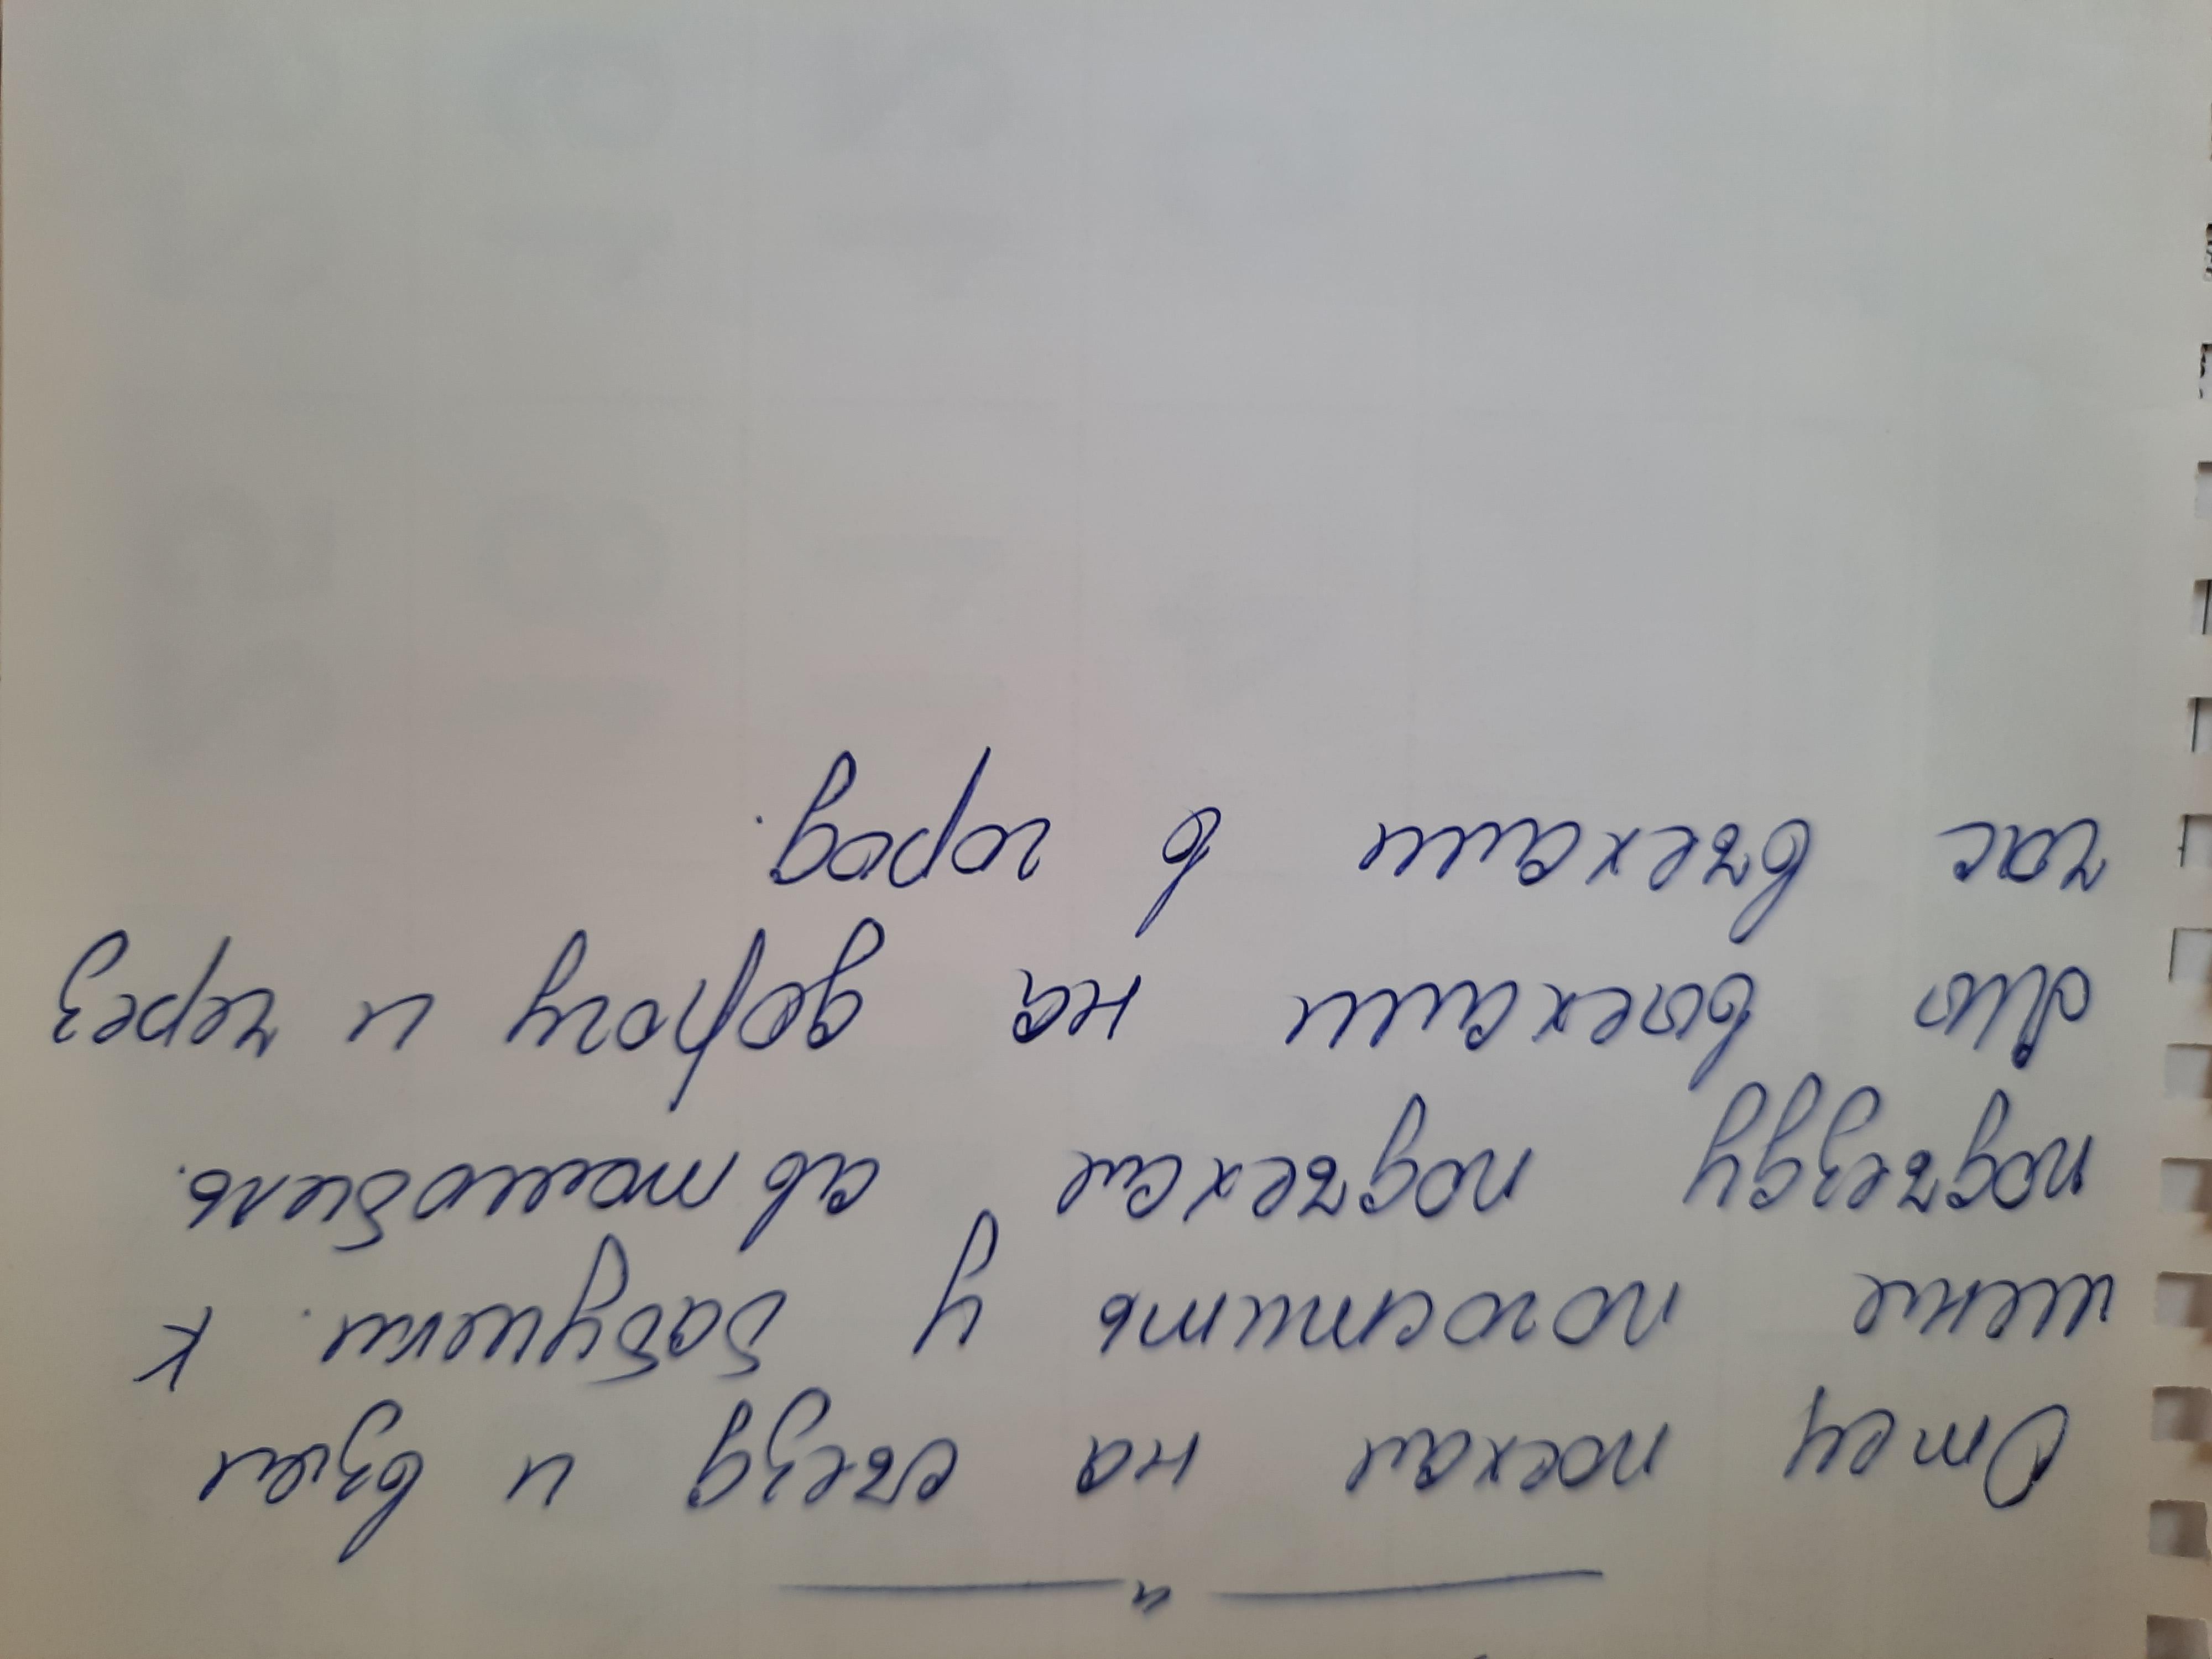 — " —
Отец поехал на съезд и взял
меня погостить у бабушки. К
подъезду подъехал автомобиль.
Мы выехали на дорогу и через
час въехали в город.